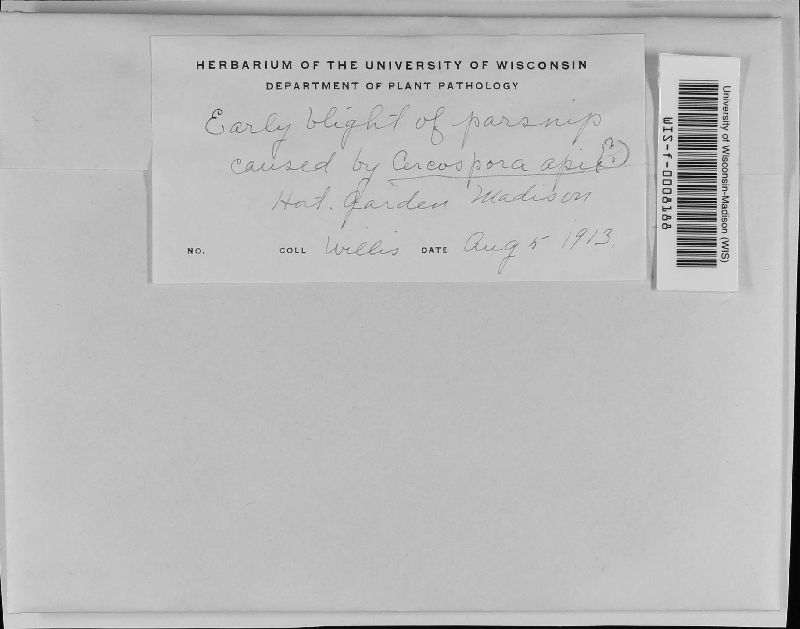 HERBARIUM OF THE UNIVERSITY OF WISCONSIN
DEPARTMENT OF PLANT PATHOLOGY
Early blight of parsnip
caused by Cercospora apii (?)
Hort. Garden Madison
NO. COLL Willis DATE Aug 5 1913.
University of Wisconsin-Madison (WIS)
WIS-f-0008188